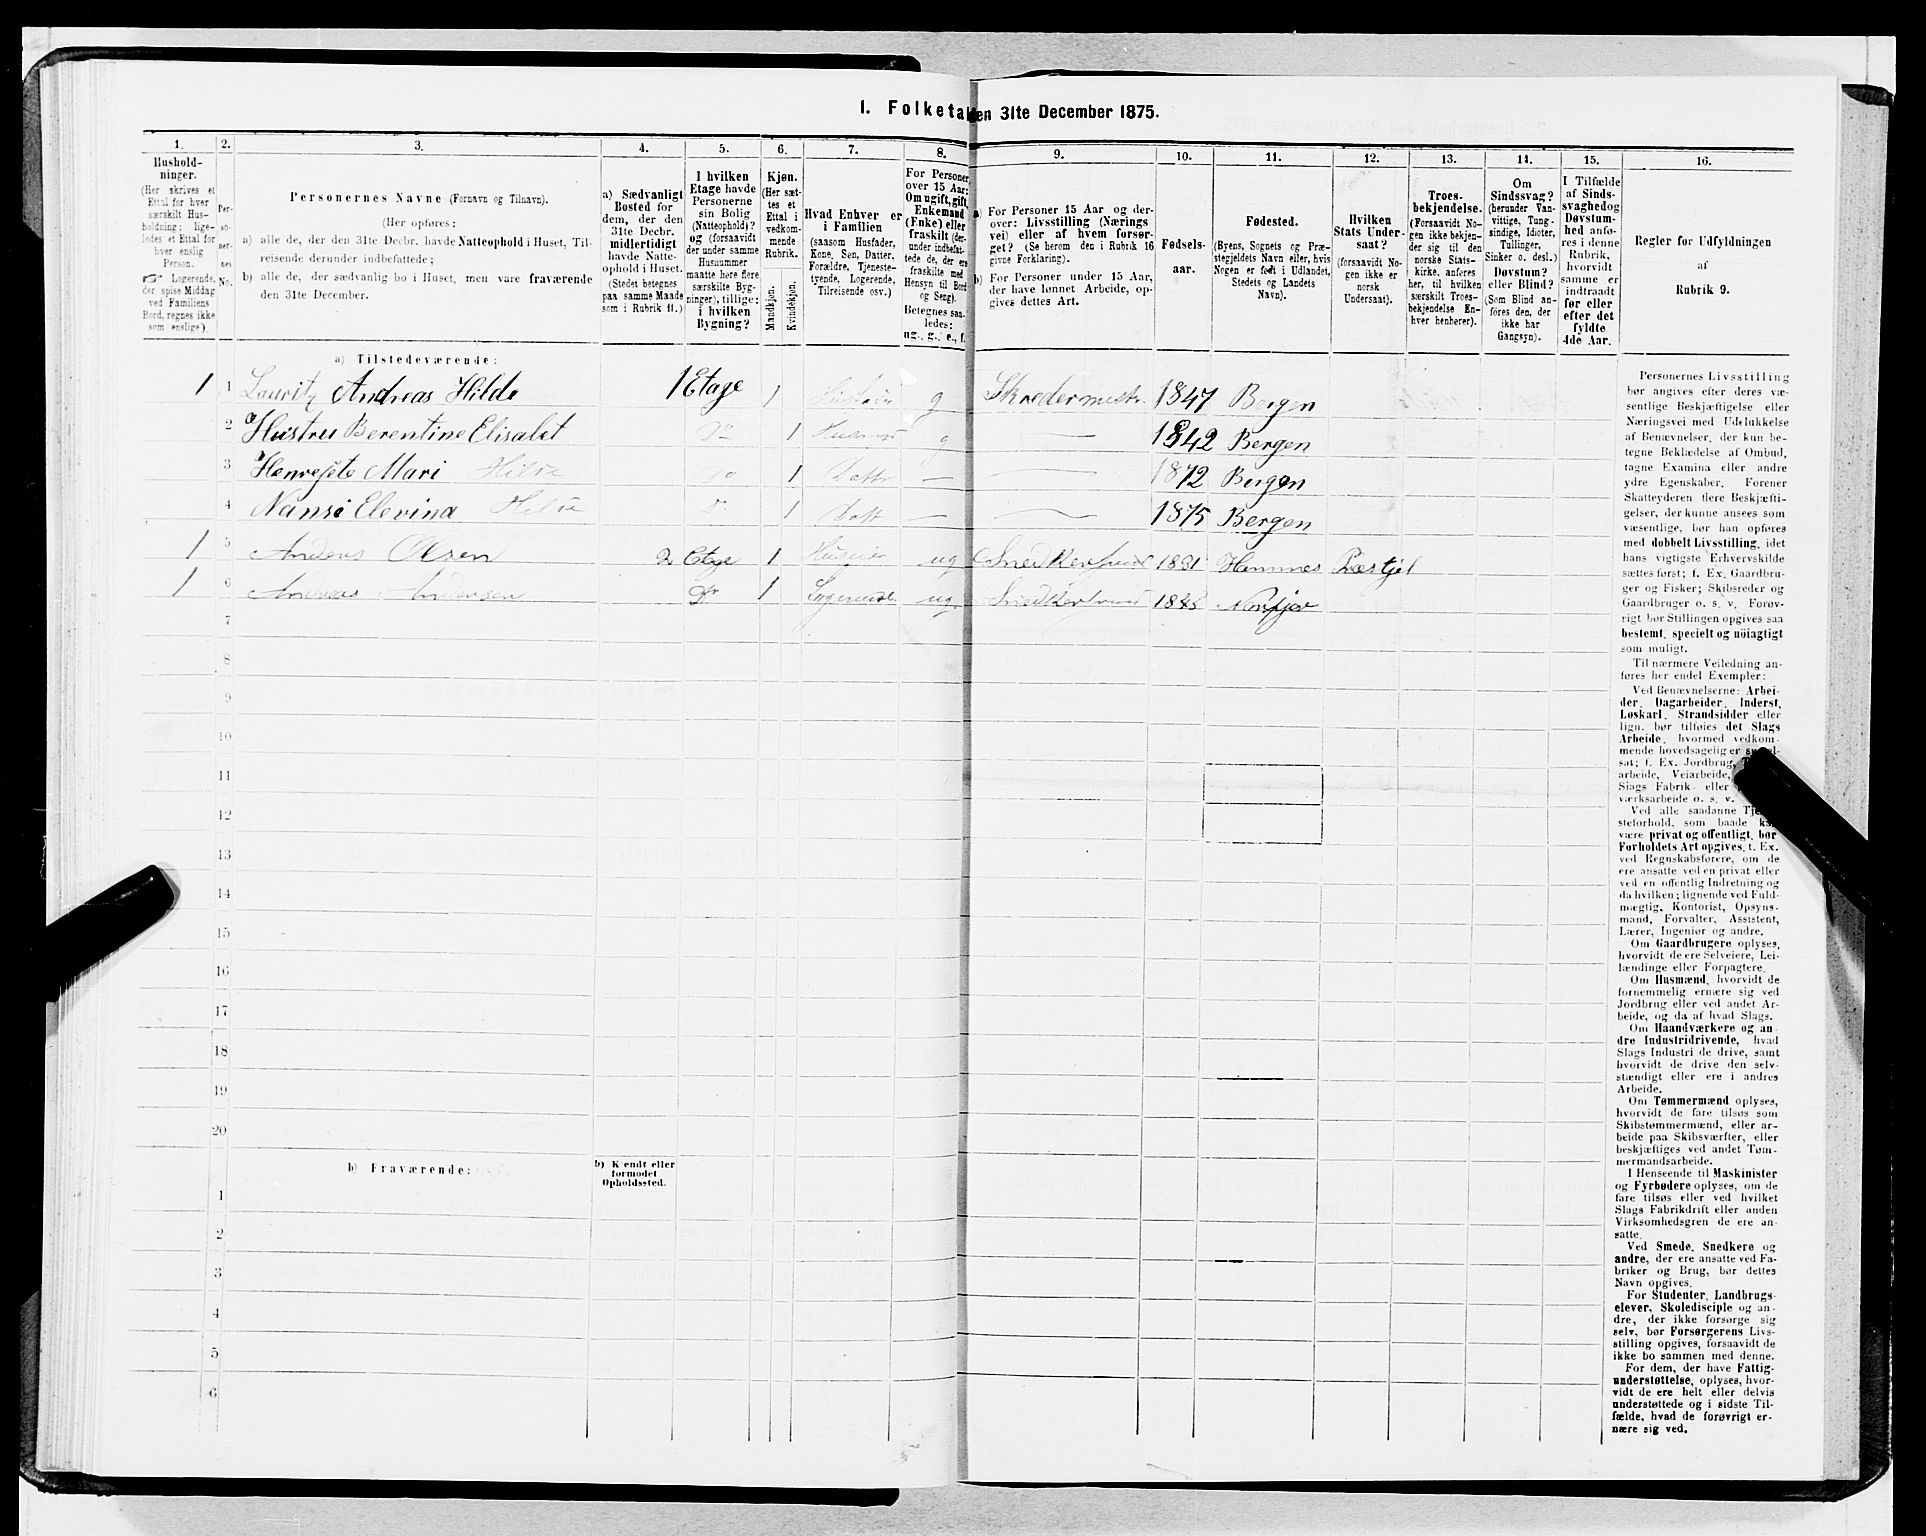 I. Folketal den 31te December 1875.
1. 2. 3. 4. 5. 6. 7. 8. 9. 10. 11. 12. 13. 14. 15. 16.
Hushold-
ninger.
(Her skrives et
Ettal for hver
særskilt Hus-
holdning; lige-
ledes et Ettal for
hver enslig
Person.
☞ Logerende,
der spise Middag
ved Familiens
Bord, regnes ikke
som enslige).
Per-
so-
ner-
nes
No.
Personernes Navne (Fornavn og Tilnavn).
(Her opføres:
a) alle de, der den 31te Decbr. havde Natteophold i Huset, Til-
reisende derunder indbefattede;
b) alle de, der sædvanlig bo i Huset, men vare fraværende
den 31te December.
a) Sædvanligt
Bosted for
dem, der den
31te Decbr.
midlertidigt
havde Natte-
ophold i Huset.
(Stedet betegnes
paa samme Maade
som i Rubrik 11.)
I hvilken
Etage havde
Personerne
sin Bolig
(Natteophold)?
og (forsaavidt
der under samme
Husnummer
maatte være flere
særskilte Byg-
ninger), tillige:
i hvilken
Bygning?
Kjøn.
(Her sæt-
tes et
Ettal i
vedkom-
mende
Rubrik.
Mandkjøn.
Kvindekjøn.
Hvad Enhver er
i Familien
(saasom Husfader,
Kone, Søn, Datter,
Forældre, Tjeneste-
tyende, Logerende,
Tilreisende osv.)
For Personer
over 15 Aar:
Om ugift, gift,
Enkemand
(Enke) eller
fraskilt (der-
under indbefat-
tede de, der ere
fraskilte med
Hensyn til Bord
og Seng).
Betegnes saa-
ledes:
ug., g., e., f.
a) For Personer 15 Aar og der-
over: Livsstilling (Nærings-
vei) eller af hvem forsør-
get? (Se herom den i Rubrik 16
givne Forklaring).
b) For Personer under 15 Aar,
der have lønnet Arbeide, op-
gives dettes Art.
Fødsels-
aar.
Fødested.
(Byens, Sognets og Præ-
stegjeldets Navn eller, hvis
Nogen er født i Udlandet,
Stedets og Landets
Navn).
Hvilken
Stats Under-
saat?
(forsaavidt No-
gen ikke er
norsk
Undersaat).
Troes-
bekjendelse.
(Forsaavidt No-
gen ikke bekjen-
der sig til den
norske Stats-
kirke, anføres
her, til hvilken
særskilt Troes-
bekjendelse En-
hver henhører).
Om
Sindssvag?
(herunder Van-
vittige, Tung-
sindige, Idioter,
Tullinger,
Sinker o. desl.)
Døvstum?
eller Blind?
(Som Blind an-
føres den, der
ikke har
Gangsyn).
I Tilfælde
af Sinds-
svaghed og
Døvstum-
hed anfø-
res i denne
Rubrik,
hvorvidt
samme er
indtraadt
før eller
efter det
fyldte
4de Aar.
Regler for Udfyldningen
af
Rubrik 9.
a) Tilstedeværende:
1 1 Lauritz Andreas Hilde 1 Etage 1 g Skredermestr. 1847 Bergen
2 Hustru Berentine Elisabet Do 1 Husmor g — 1842 Bergen
3 Mari Hilde Do 1 Dattr — — 1872 Bergen
4 Nansi Elevina Hilde Do 1 Datt — — 1875 Bergen
1 5 Anders Olsen 2 Etage 1 ug 18 1 Hemnes Præstjel
1 6 Andreas Andersen Do 1 ug. 1845
7
8
9
10
11
12
13
14
15
16
17
18
19
20
b) Fraværende:
b) Kendt eller
formodet
Opholdssted.
1
2
3
4
5
6
Personernes Livsstilling
bør angives efter deres væ-
sentlige Beskjæftigelse eller
Næringsvei med Udelukkelse
af Benævnelser, der kun be-
tegne Beklædelse af Ombud,
tagne Examina eller andre
ydre Egenskaber. Forener
Skatteyderen flere Beskjæfti-
gelser, der kunne ansees som
væsentlige, bør han opføres
med dobbelt Livsstilling, idet
hans vigtigste Erhvervskilde
sættes først; f. Ex. Gaardbru-
ger og Fisker; Skibsreder og
Gaardbruger o. s. v. Forøv-
rigt bør Stillingen opgives saa
bestemt, specielt og nöiagtigt
som muligt.
Til nærmere Veiledning an-
føres her endel Exempler:
Ved Benævnelserne: Arbei-
der, Dagarbeider, Inderst,
Løskarl, Strandsidder eller
lign. bør tilføies det Slags
Arbeide, hvormed vedkom-
mende hovedsagelig er
sat; f. Ex. Jordbrug,
arbeide, Veiarbeide,
Slags Fabrik- eller
værksarbeide o. s. v.
Ved alle saadanne
steforhold, som baade
være privat og offentligt, bør
Forholdets Art opgives, t. Ex.
ved Regnskabsførere, om de
ere ansatte ved en privat eller
ved en offentlig Indretning og
da hvilken; lignende ved Fuld-
mægtig, Kontorist, Opsyns-
mand, Forvalter, Assistent,
Lærer, Ingeniør og andre.
Om Gaardbrugere oplyses,
hvorvidt de ere Selveiere, Lei-
lændinge eller Forpagtere.
Om Husmænd, hvorvidt de
fornemmelig ernære sig ved
Jordbrug eller ved andet Ar-
beide, og da af hvad Slags.
Om Haandværkere og an-
dre Industridrivende, hvad
Slags Industri de drive, samt
hvorvidt de drive den selv-
stændigt eller ere i andres
Arbeide.
Om Tømmermænd oplyses,
hvorvidt de fare tilsøs som
Skibstømmermænd, eller ar-
beide paa Skibsværfter, eller
beskjæftiges ved andet Tøm-
mermandsarbeide.
I Henseende til Maskinister
og Fyrbødere oplyses, om de
fare tilsøs eller ved hvilket
Slags Fabrikdrift eller anden
Virksomhedsgren de ere an-
satte.
Ved Smede, Snedkere og
andre, der ere ansatte ved Fa-
briker og Brug, bør dettes
Navn opgives.
For Studenter, Landbrugs-
elever, Skoledisciple og an-
dre, der ikke forsørge sig
selv, bør Forsørgerens Livs-
stilling opgives, forsaavidt de
ikke bo sammen med denne.
For dem, der have Fattig-
understøttelse, oplyses, hvor-
vidt de ere helt eller delvis
understøttede og i sidste Til-
fælde, hvad de forøvrigt er-
nære sig ved.